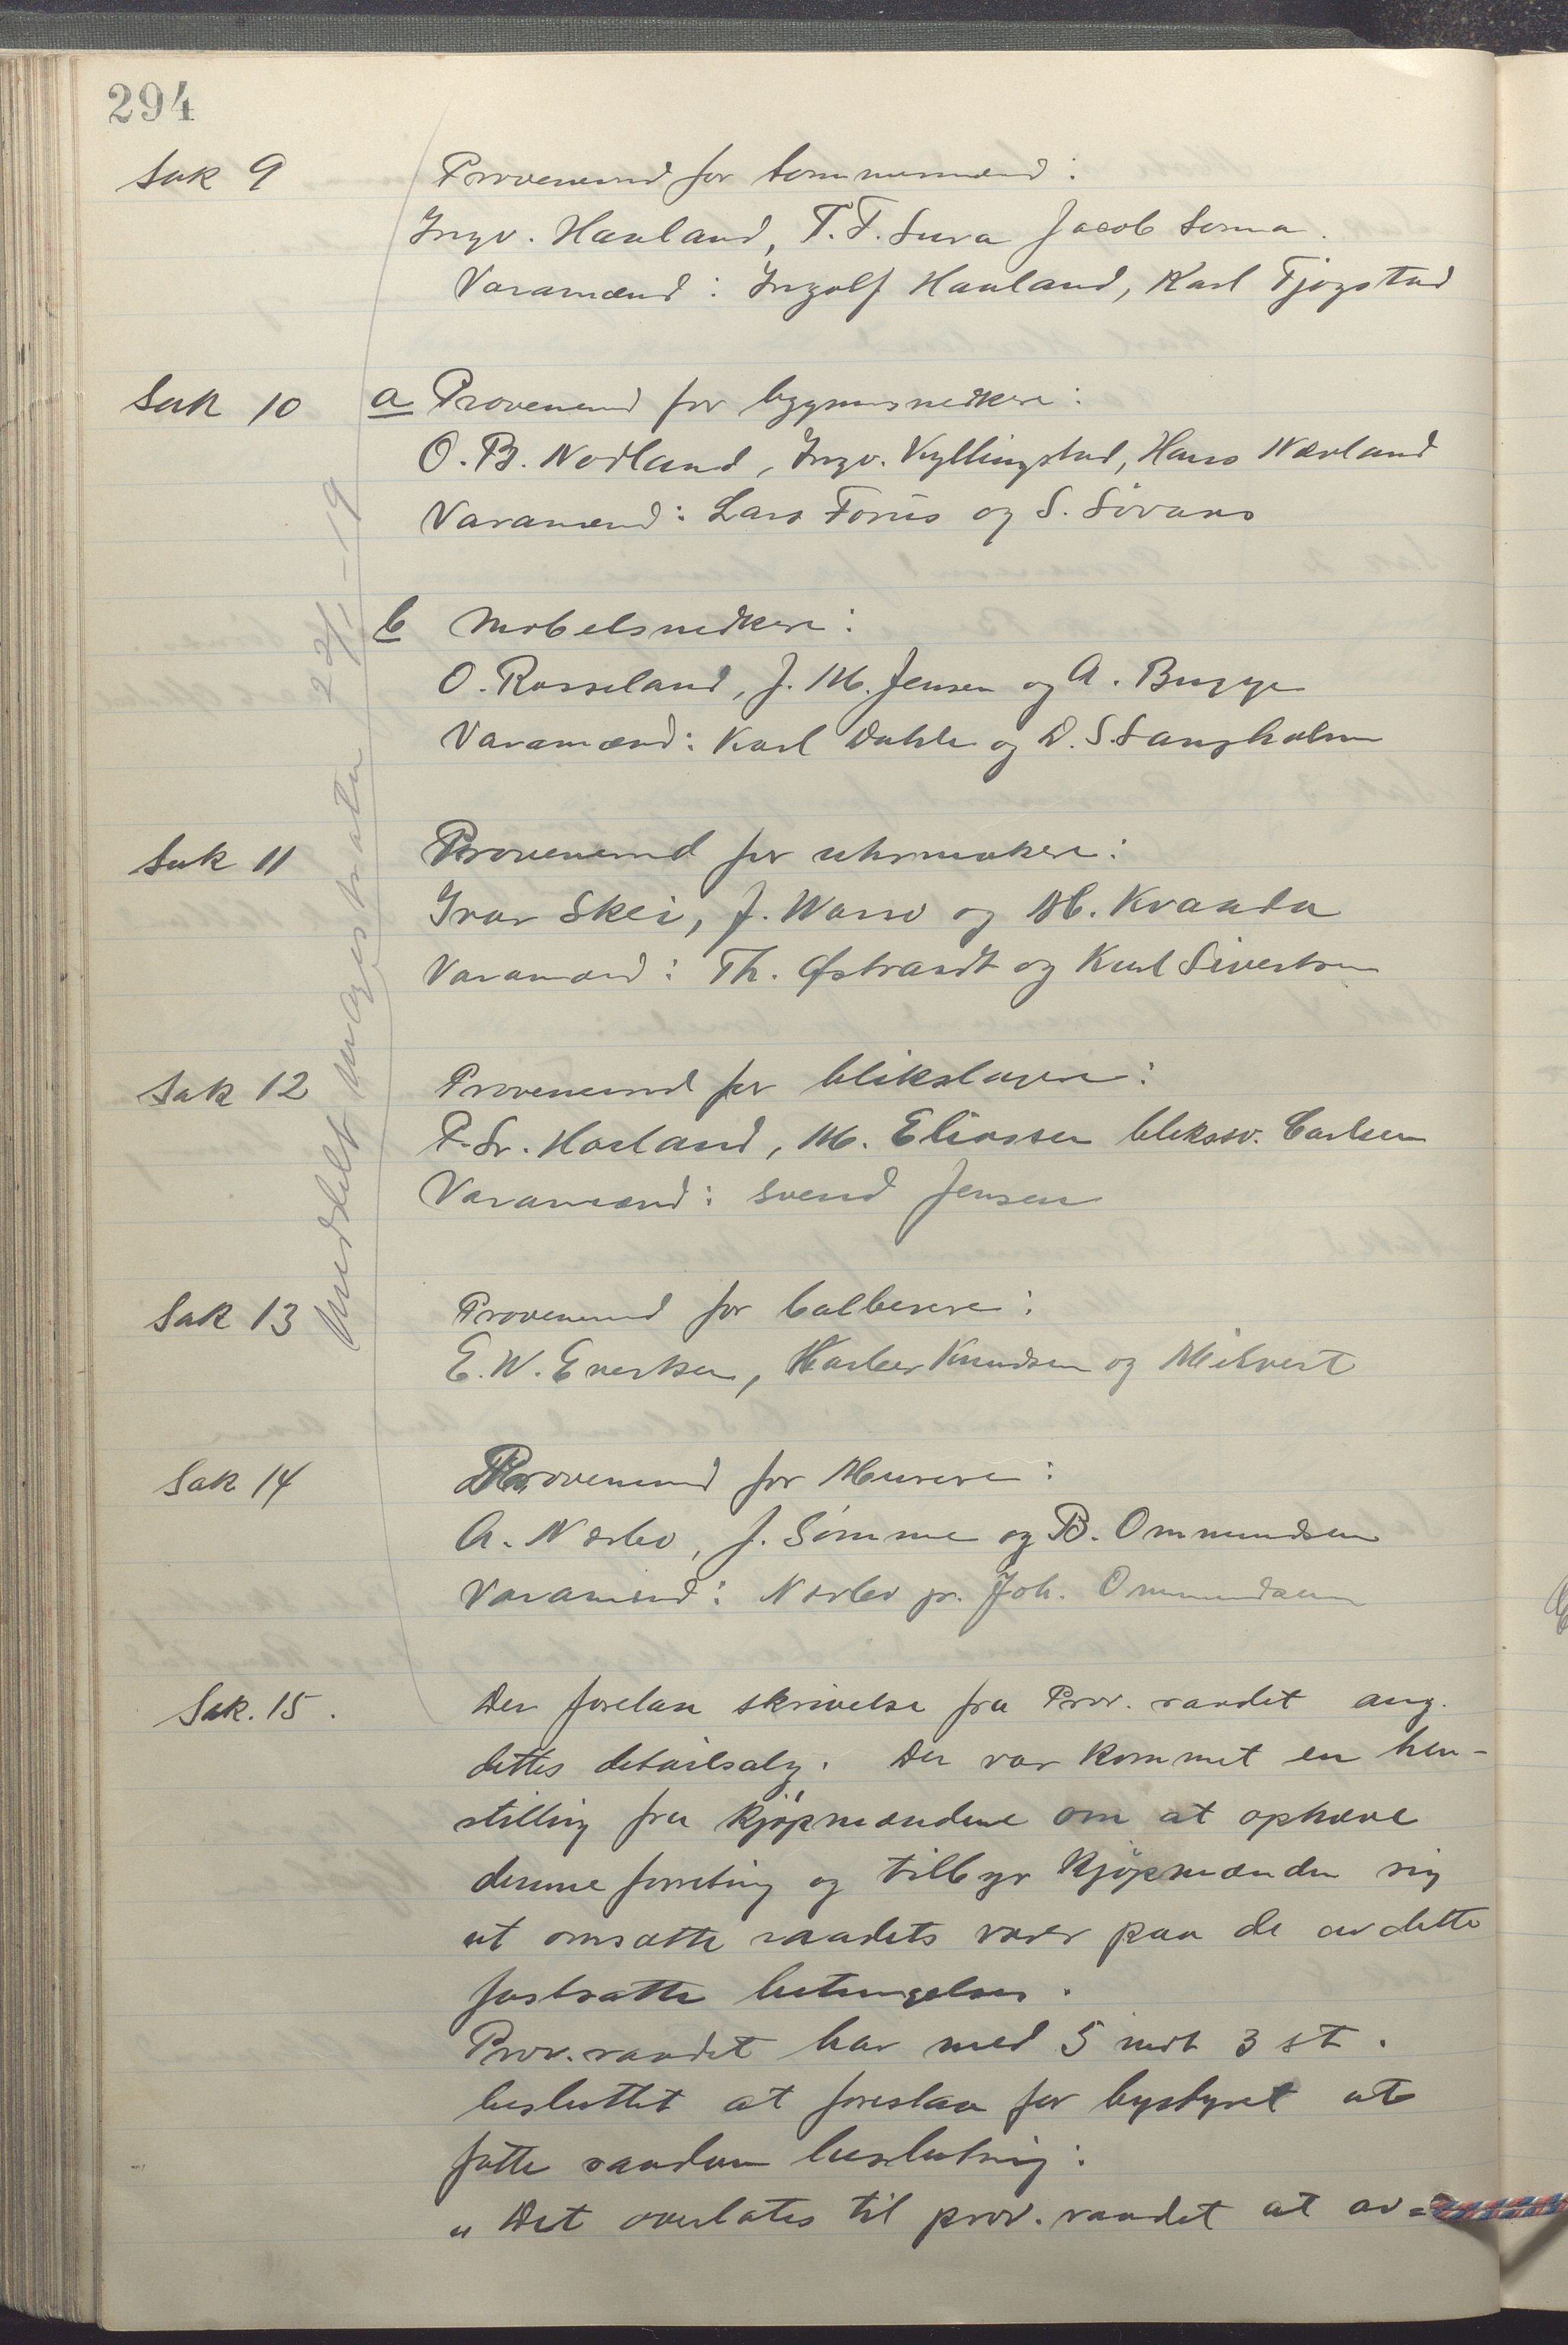 294
Sak 9 Prøvenemnd for tømmermænd:
Ingv. Hauland, T. F. Sura Jacob Soma.
Varamænd: Ingolf Hauland, Karl Tjogstad
Sak 10 a Prøvenemnd for bygningsnedkere:
O. B. Nodland, Ingv. Kyllingstad, Hans Nærland
Varamænd: Lars Forus og S. Sivans
b Møbelsnedkere:
O. Rosseland, J. M. Jensen og A. Bugge
Varamænd: Karl Dahle og D. S. Langholm
Sak 11 Prøvenemnd for uhrmakere:
Ivar Skei, J. Warso og M. Kvaada
Varamænd: Th. Østrandt og Karl Sivertsen
Sak 12 Prøvenemnd for blikslagere:
P. Sr. Hoiland, M. Eliassen bliksv. Carlsen
Varamænd: Svend Jensen
Sak 13 Prøvenemnd for balberere:
E. W. Evertsen, Knudsen og
Sak 14 Prøvenemnd for Murere:
A. Nærbø, J. Sømme og B. Ommundsen
Varamænd: Nærbø jr. Joh. Ommundsen
Sak. 15. Der forelaa skrivelse fra Prov. raadet ang.
dettes detailsalg. Der var kommet en hen-
stilling fra kjøpmændene om at ophæve
denne forretning og tilbyr kjøpmænden sig
at omsætte raadets varer paa de av dette
fastsatte betingelser.
Prov. raadet har med 5 mot 3 st.
besluttet at foreslaa for bystyret at
fatte saadan beslutning:
„Det overlates til prov. raadet at av=
Meddelt Magistraten 22/1-19